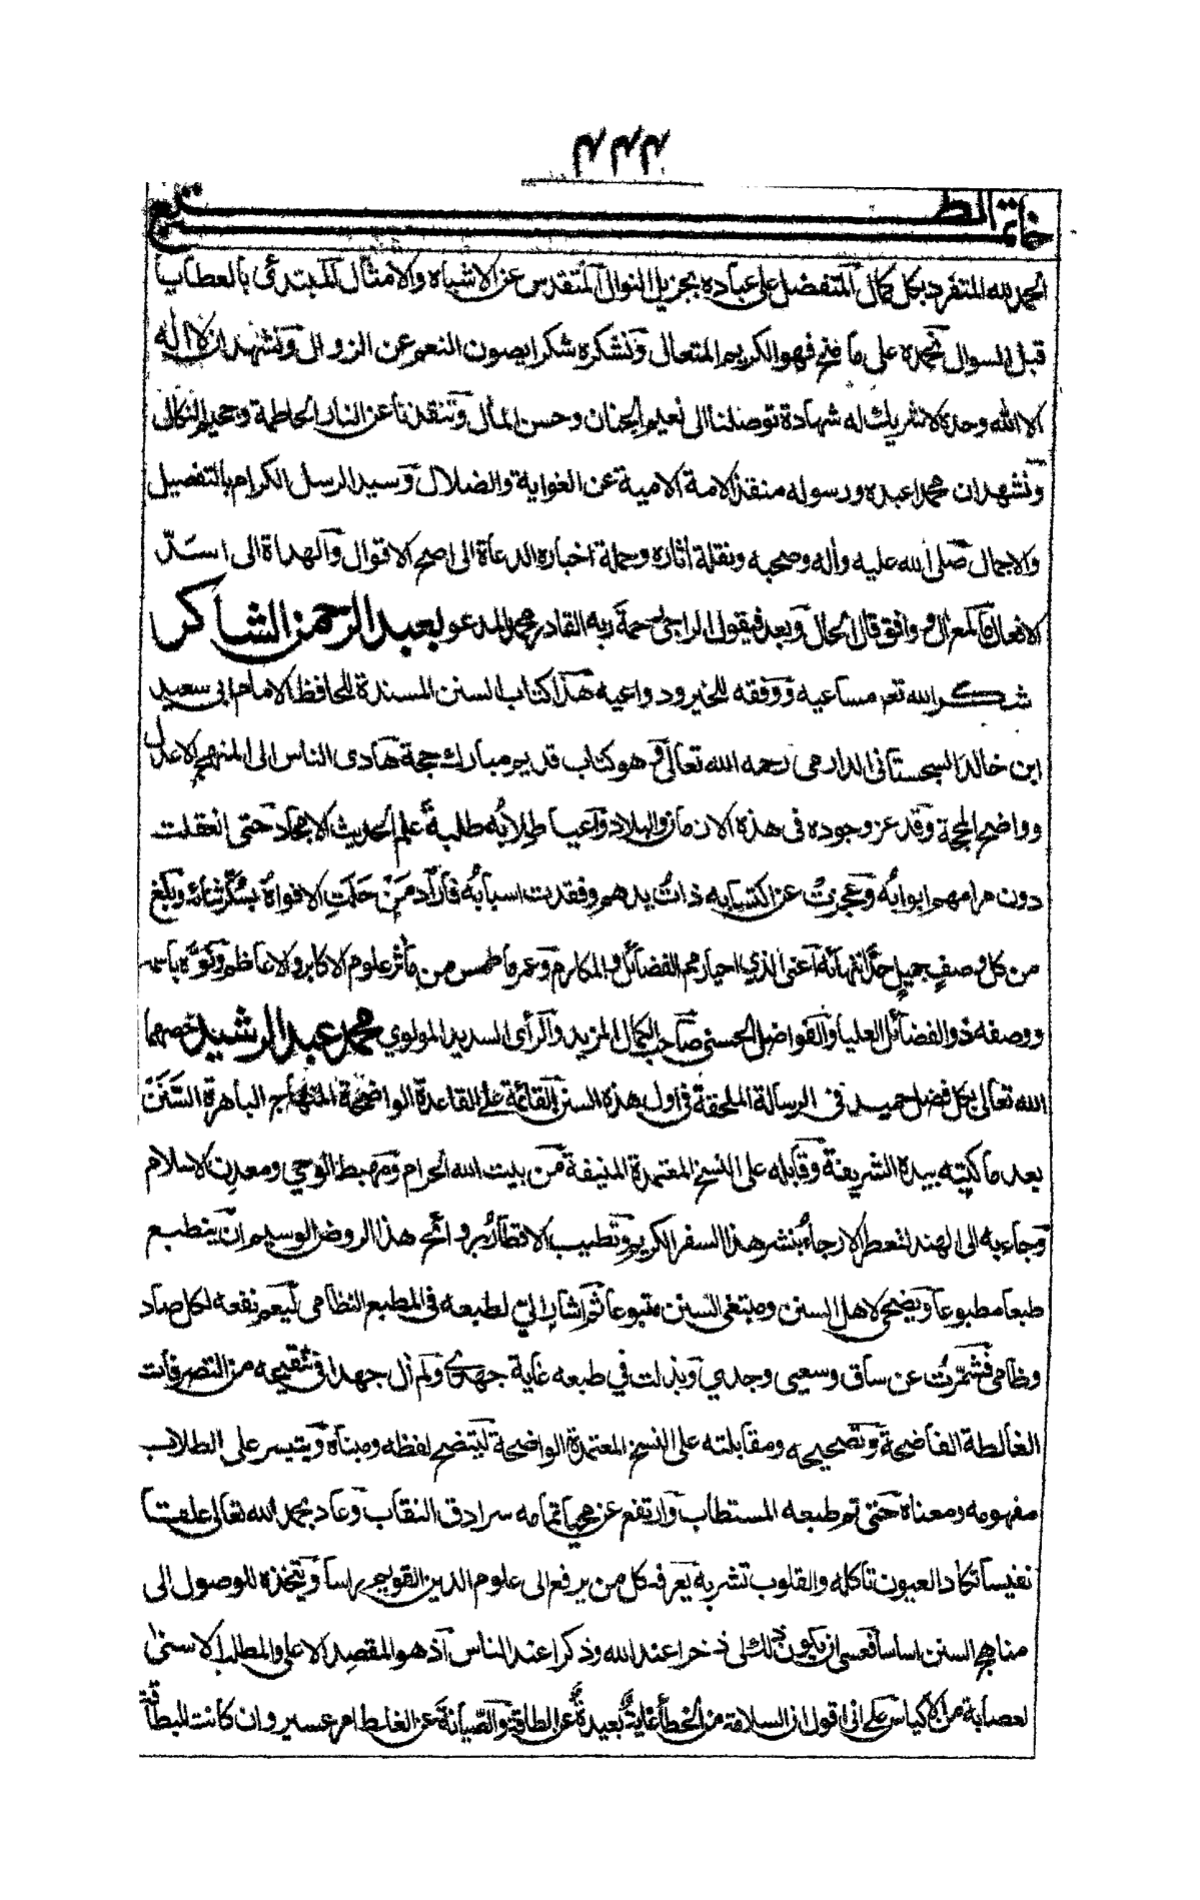 ۴۴۴
خاتمة الطبع
الحمد لله المتفرد بكل كمال المتفضل على عباده بجزيل النوال المتقدس عن الاشباه والامثال المبتدئ بالعطايا
قبل السوال نحمده على ما منح فهو الكريم المتعال ونشكره شكرا يصون النعم عن الزوال ونشهد ان لا اله
الا الله وحده لا شريك له شهادة توصلنا الى نعيم الجنان وحسن المآل وتنقذنا عن النار الحاطمة وجحيم النكال
ونشهد ان محمدا عبده ورسوله منقذ الامة الامية عن الغواية والضلال وسيد الرسل الكرام بالتفصيل
والاجمال صلى الله عليه وآله وصحبه ونقلة آثاره وحملة اخباره الدعاة الى اصح الاقوال والهداة الى اسدّ
الافعال ما لمع ال ووافق قال الحال وبعد فيقول الراجى رحمة ربه القادر محمد المدعو بعبد الرحمن الشاكر
شكر الله تعم مساعيه ووفقه للخير ودواعيه هذا كتاب السنن المسندة للحافظ الامام ابى سعيد
ابن خالد السجستانى الدارمى رحمه الله تعالى وهو كتاب قديم مبارك حجة هادى الناس الى المنهج الاعدل
وواضح المحجة وقد عز وجوده فى هذه الازمان والبلاد واعيا طلابه طلبة علم الحديث الامجاد حتى انغلقت
دون مرامهم ابوابه وعجزت عن اكتسابه ذات يدهم وفقدت اسبابه فاراد من حلت الافواه بسكر ثنائه وبلغ
من كل وصف جميل حد انتهائه اعنى الذى احيا رمم الفضائل والمكارم وعمر ما طمس من مآثر علوم الاكابر والاعاظم ونوه باسمه
ووصفه ذو الفضائل العليا والفواضل الحسنى صاحب الكمال المزيد والرأى السديد المولوي محمد عبد الرشيد خصهما
الله تعالى بكل فضل حميد فى الرسالة الملحقة فى اول هذه السنن القائمة على القاعدة الواضحة المنهاج الباهرة السَّنَن
بعد ما كتبه بيده الشريفة وقابله على النسخ المعتمدة المنيفة من بيت الله الحرام ومهبط الوحي ومعدن الاسلام
وجاء به الى الهند لتعطر الارجاء بنشر هذا السفر الكريم وتطييب الاقطار بروائح هذا الروض الوسيم ان ينطبع
طبعا مطبوعا ويضحى لاهل السنن ومبتغى السنن متبوعا ثم اشار الىّ لطبعه فى المطبع النظامى ليعم نفعه لكل صاد
وظامى فشمّرت عن ساقى وسعيى وجدي وبذلت في طبعه غاية جهدى ولم آل جهدا فى تنقيحه من التصرفات
الغالطة الفاضحة وتصحيحه ومقابلته على النسخ المعتمدة الواضحة ليتضح لفظه ومبناه ويتيسر على الطلاب
مفهومه ومعناه حتى تم طبعه المستطاب وارتفع عن محيا تمامه سرادق النقاب وعاد بحمد الله تعالى علقا
نفيسا تكاد العيون تأكله والقلوب تشربه يعرفه كل من يرفع الى علوم الدين القويم راسا ويتخذه للوصول الى
مناهج السنن اساسا فعسى ان يكون ذلك لى ذخرا عند الله وذكرا عند الناس اذ هو المقصد الاعلى والمطلب الاسنى
لعصابة من الاكياس على انى اقول ان السلامة من الخطأ غاية بعيدة عن الطاقة والصيانة عن الغلط امر عسير وان كانت للبطاقة